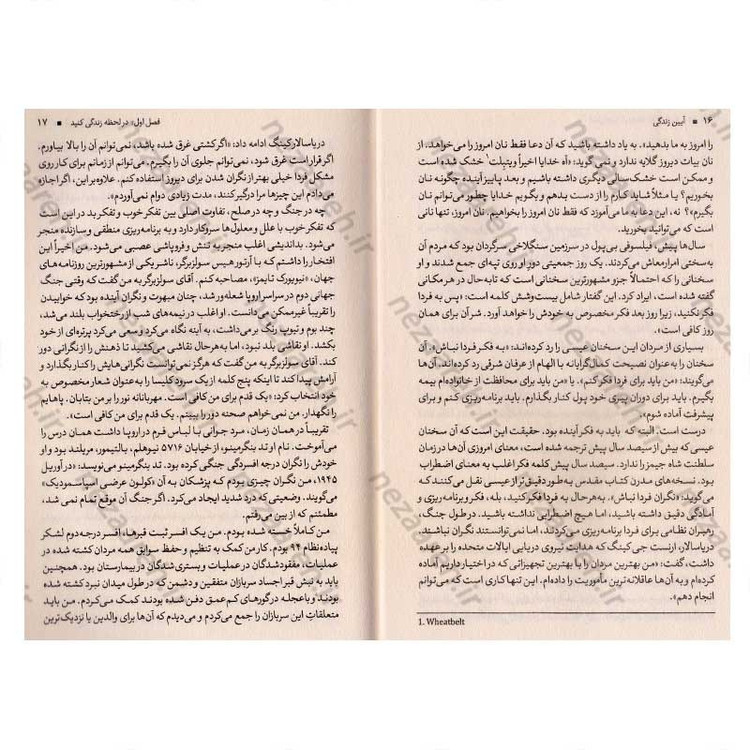 ۱۶ ■ آیین زندگی
را امروز به ما بدهید». به یاد داشته باشید که آن دعا فقط نان امروز را می‌خواهد. از
نان بیات دیروز گلایه ندارد و نمی‌گوید: «آه خدایا اخیراً ویتبلت¹ خشک شده است
و ممکن است خشک‌سالی دیگری داشته باشیم و بعد پاییز آینده چگونه نان
بخوریم؟ یا مثلاً شاید کارم را از دست بدهم و بگویم خدایا چطور می‌توانم نان
بگیرم»؟ نه، این دعا به ما می‌آموزد که فقط نان امروز را بخواهیم. نان امروز، تنها نانی
است که می‌توانید بخورید.
سال‌ها پیش، فیلسوفی بی‌پول در سرزمین سنگلاخی سرگردان بود که مردم آن
به‌سختی امرارمعاش می‌کردند. یک روز جمعیتی دور او روی تپه‌ای جمع شدند و او
سخنانی را که احتمالاً جزو مشهورترین سخنانی است که تابه‌حال در هر مکانی
گفته شده است، ایراد کرد. این گفتار شامل بیست‌وشش کلمه است: «پس به فردا
فکر نکنید، زیرا روز بعد فکر مخصوص به خودش را خواهد آورد. شر آن برای همان
روز کافی است».
بسیاری از مردان این سخنان عیسی را رد کرده‌اند: «به فکر فردا نباش». آن
سخنان را به‌عنوان نصیحت کمال‌گرایانه با الهام از عرفان شرقی رد کرده‌اند. آن‌ها
می‌گویند: «من باید برای فردا فکر کنم». یا «من باید برای محافظت از خانواده‌ام بیمه
بگیرم. باید برای دوران پیری خود پول کنار بگذارم. باید برای برنامه‌ریزی کنم و
پیشرفت آماده شوم».
درست است. البته که باید به فکر آینده بود. حقیقت این است که آن سخنان
عیسی که بیش از سیصد سال پیش ترجمه شده است، معنای امروزی آن‌ها در زمان
سلطنت شاه جیمز را ندارد. سیصد سال پیش کلمه فکر اغلب به معنای اضطراب
بود. نسخه‌های مدرن کتاب مقدس به‌طور دقیق‌تر از عیسی نقل می‌کنند که
می‌گوید: «نگران فردا نباش». به‌هرحال به فردا فکر کنید، بله، فکر و برنامه‌ریزی و
آمادگی دقیق داشته باشید، اما هیچ اضطرابی نداشته باشید. در طول جنگ،
رهبران نظامی برای فردا برنامه‌ریزی می‌کردند، اما نمی‌توانستند نگران باشند.
دریاسالار، ارنست جی کینگ که هدایت نیروی دریایی ایالات متحده را بر عهده
داشت، گفت: «من بهترین مردان را با بهترین تجهیزاتی که در اختیار داریم آماده
کرده‌ام و به آن‌ها عاقلانه‌ترین مأموریت را داده‌ام. این تنها کاری است که می‌توانم
انجام دهم».
1. Wheatbelt
فصل اول: در لحظه زندگی کنید ■ ۱۷
دریاسالار کینگ ادامه داد: «اگر کشتی غرق شده باشد، نمی‌توانم آن را بالا بیاورم.
اگر قرار است غرق شود، نمی‌توانم جلوی آن را بگیرم. می‌توانم از زمانم برای کار روی
مشکل فردا خیلی بهتر از نگران شدن برای دیروز استفاده کنم. علاوه‌بر این، اگر اجازه
می‌دادم این چیزها مرا درگیر کنند، مدت زیادی دوام نمی‌آوردم».
چه در جنگ و چه در صلح، تفاوت اصلی بین تفکر خوب و تفکر بد در این است
که تفکر خوب با علل و معلول‌ها سروکار دارد و به برنامه‌ریزی منطقی و سازنده منجر
می‌شود. بداندیشی اغلب منجر به تنش و فروپاشی عصبی می‌شود. من اخیراً این
افتخار را داشتم که با آرتور هیس سولزبرگر، ناشر یکی از مشهورترین روزنامه‌های
جهان، «نیویورک تایمز»، مصاحبه کنم. آقای سولزبرگر به من گفت که وقتی جنگ
جهانی دوم در سراسر اروپا شعله‌ور شد، چنان مبهوت و نگران آینده بود که خوابیدن
را تقریباً غیرممکن می‌دانست. او اغلب در نیمه‌های شب از رختخواب بلند می‌شد،
چند بوم و تیوپ رنگ برمی‌داشت، به آینه نگاه می‌کرد و سعی می‌کرد پرتره‌ای از خود
بکشد. او نقاشی بلد نبود، اما به‌هرحال نقاشی می‌کشید تا ذهنش را از نگرانی دور
کند. آقای سولزبرگر به من گفت که هرگز نمی‌توانست نگرانی‌هایش را کنار بگذارد و
آرامش پیدا کند تا اینکه پنج کلمه از یک سرود کلیسا را به‌عنوان شعار مخصوص به
خود انتخاب کرد: «یک قدم برای من کافی است. مهربانانه نور بر من بتابان. پاهایم
را نگهدار. من نمی‌خواهم صحنه دور را ببینم. یک قدم برای من کافی است».
تقریباً در همان زمان، مرد جوانی با لباس فرم در اروپا داشت همان درس را
می‌آموخت. نام او تد بنگرمینو، از خیابان ۵۷۱۶ نیوهلم، بالتیمور، مریلند بود و او
خودش را نگران درجه افسردگی جنگی کرده بود. تد بنگرمینو می‌نویسد: «در آوریل
۱۹۴۵، من نگران چیزی بودم که پزشکان به آن «کولون عارضی اسپاسمودیک»
می‌گویند. وضعیتی که درد شدید ایجاد می‌کرد. اگر جنگ آن موقع تمام نمی شد،
مطمئنم که از بین می‌رفتم.
من کاملاً خسته شده بودم. من یک افسر ثبت قبرها، افسر درجه‌دوم لشکر
پیاده‌نظام ۹۴ بودم. کار من کمک به تنظیم و حفظ سوابق همه مردان کشته شده در
عملیات، مفقودشدگان در عملیات و بستری‌شدگان در بیمارستان بود. همچنین
باید به نبش قبر اجساد سربازان متفقین و دشمن که در طول میدان نبرد کشته شده
بودند و باعجله در گورهای کم‌عمق دفن شده بودند کمک می‌کردم. من باید
متعلقات این سربازان را جمع می‌کردم و می‌دیدم که آن‌ها برای والدین یا نزدیک‌ترین
nezaareh.ir